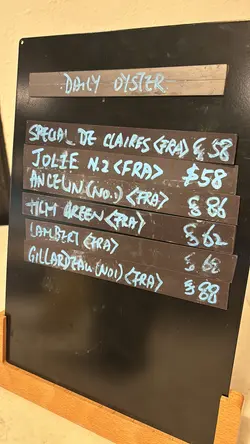 DAILY OYSTER
SPECIAL DE CLAIRES <FRA> $58
JOLIE N.2 <FRA> $58
ANCELIN (NO.1) <FRA> $86
GREEN <FRA> $62
LAMBERT <FRA> $68
GILLARDEAU (NO1) <FRA> $88